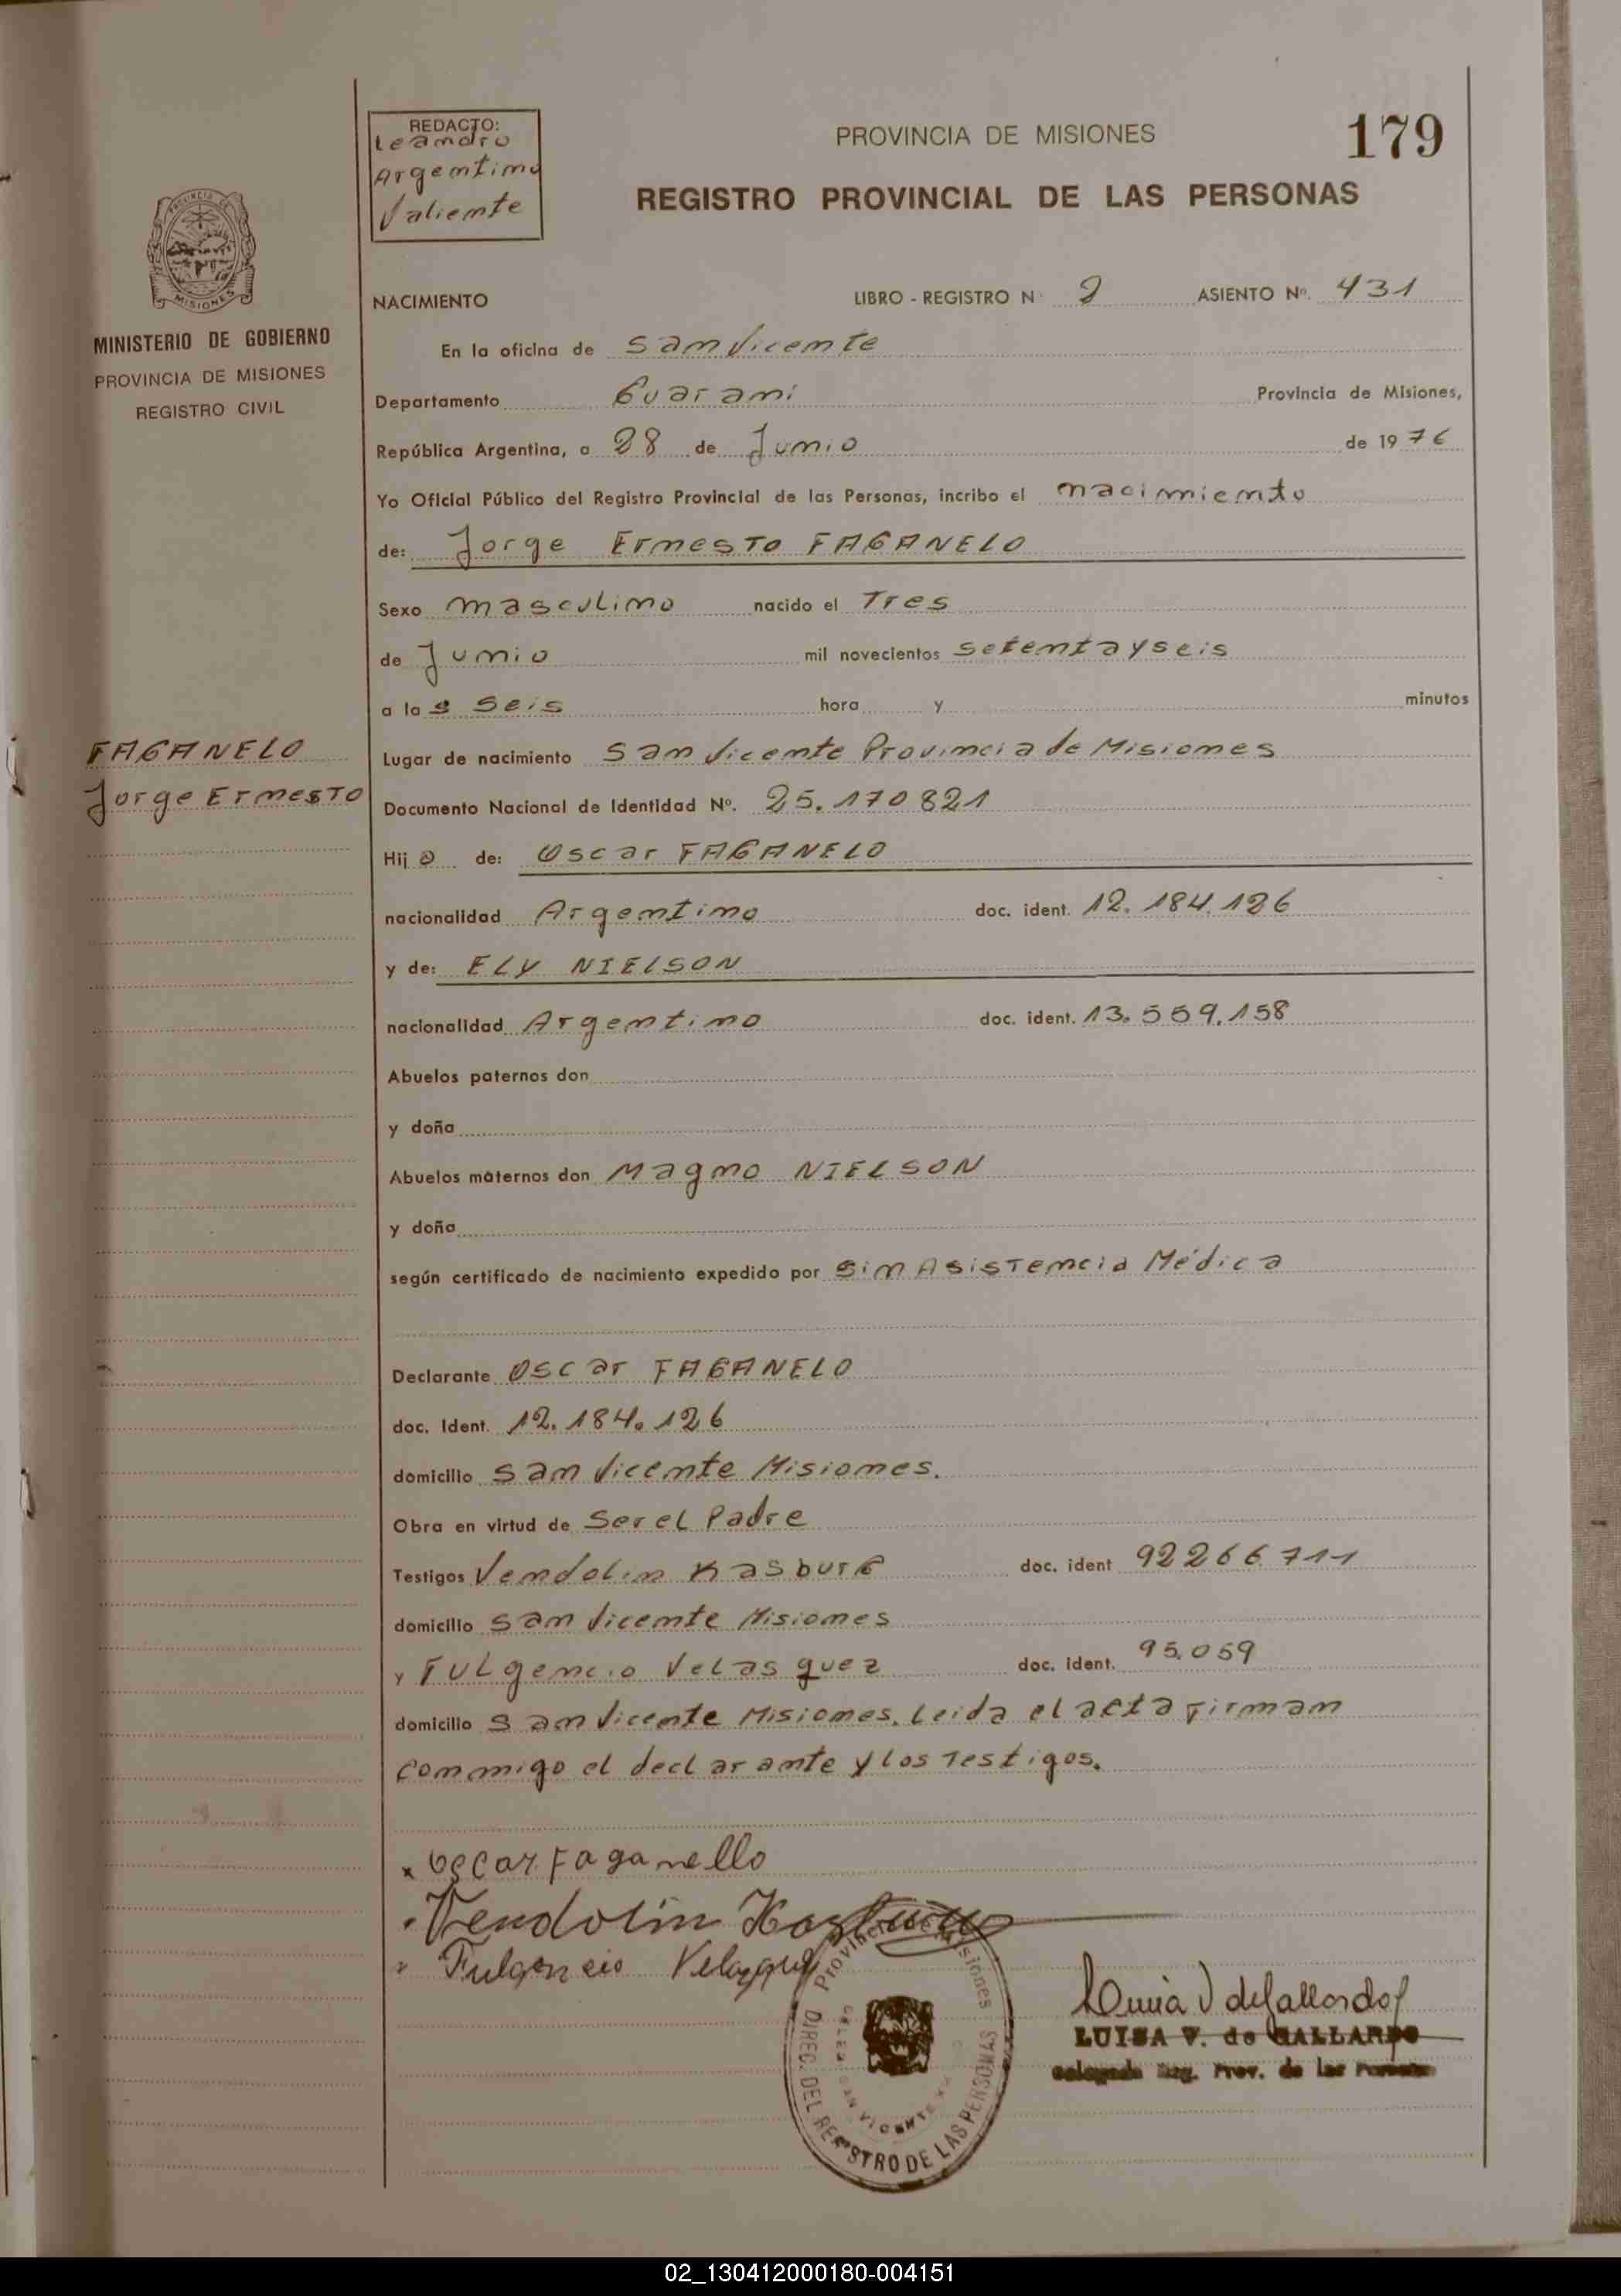 REDACTO:
Leandro
Argentino
Valiente
PROVINCIA DE MISIONES
179
REGISTRO PROVINCIAL DE LAS PERSONAS
PROVINCIA DE
MISIONES
MINISTERIO DE GOBIERNO
PROVINCIA DE MISIONES
REGISTRO CIVIL
NACIMIENTO LIBRO - REGISTRO Nº 2 ASIENTO Nº. 431
En la oficina de San Vicente
Departamento Guarani Provincia de Misiones,
República Argentina, a 28 de Junio de 1976
Yo Oficial Público del Registro Provincial de las Personas, incribo el nacimiento
de: Jorge Ernesto FAGANELO
Sexo masculino nacido el Tres
de Junio mil novecientos setenta y seis
a las seis hora y minutos
FAGANELO
Jorge Ernesto
Lugar de nacimiento San Vicente Provincia de Misiones
Documento Nacional de Identidad Nº. 25.170821
Hijo de: Oscar FAGANELO
nacionalidad Argentino doc. ident. 12.184.126
y de: ELY NIELSON
nacionalidad Argentino doc. ident. 13.559.158
Abuelos paternos don
y doña
Abuelos maternos don Magno NIELSON
y doña
según certificado de nacimiento expedido por Sin Asistencia Médica
Declarante Oscar FAGANELO
doc. Ident. 12.184.126
domicilio San Vicente Misiones.
Obra en virtud de Ser el Padre
Testigos Vendolin Kasburg doc. ident 92266711
domicilio San Vicente Misiones
y Fulgencio Velasquez doc. ident. 95.059
domicilio San Vicente Misiones. Leida el acta firman
conmigo el declarante y los Testigos.
x Oscar Faganello
Vendolin
Fulgencio
Provincia de Misiones
DIREC. DEL REGISTRO DE LAS PERSONAS
SAN VICENTE
LUISA V. de GALLARDO
Reg. Prov. de las
02_130412000180-004151